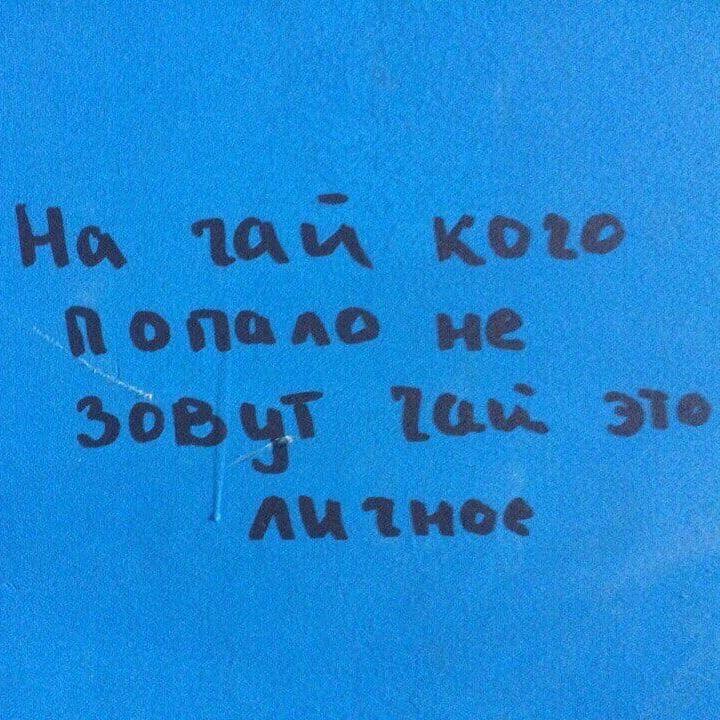 На чай кого
попало не
зовут чай это
личное